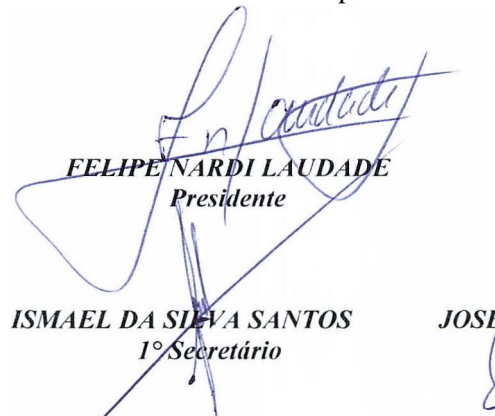 FELIPE NARDI LAUDADE
Presidente
ISMAEL DA SILVA SANTOS JOSE
1° Secretário